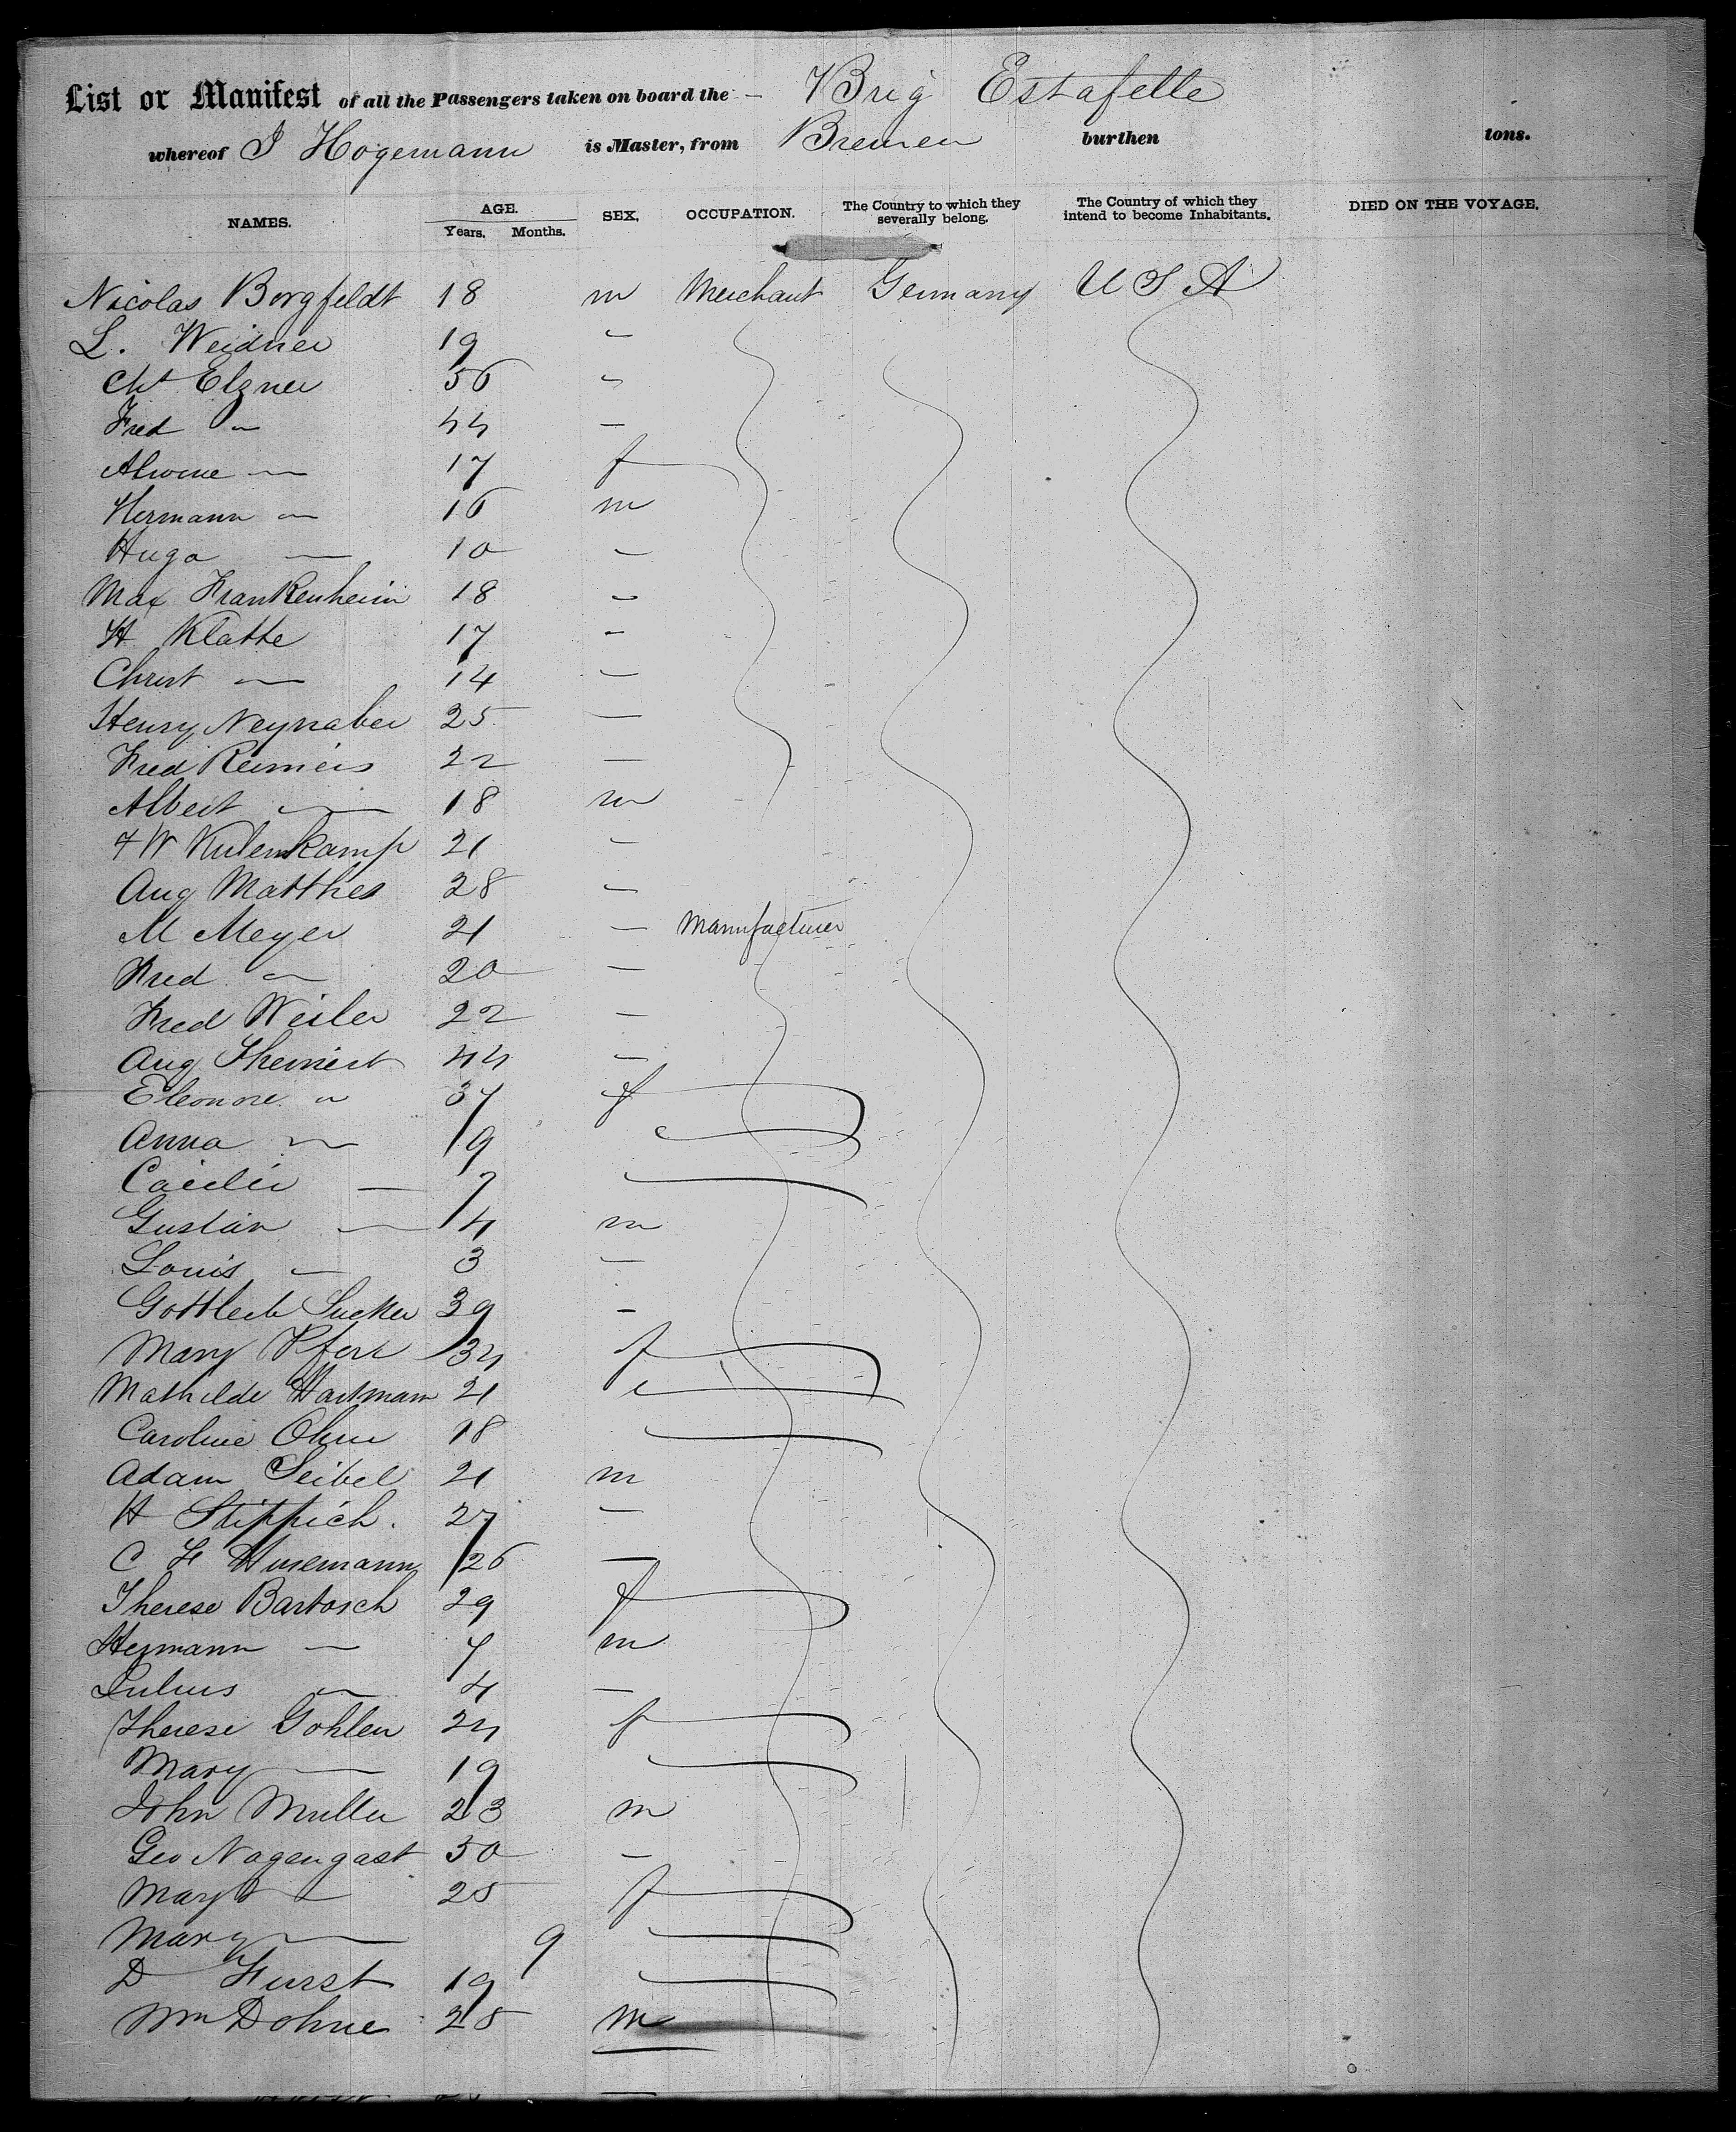 List or Manifest of all the Passengers taken on board the – Brig Estafette
whereof J Hogemann is Master, from Bremen burthen tons.
NAMES. AGE. Years. Months. SEX. OCCUPATION. The Country to which they severally belong. The Country of which they intend to become Inhabitants. DIED ON THE VOYAGE.
Nicolas Borgfeldt 18 m Merchant Germany U S A
L. Weidner 19 "
Cht Elzner 56 "
Fred " 44 "
Alwine " 17 f
Hermann " 16 m
Hugo " 10 "
Max Frankenheim 18 "
H Klatte 17 "
Christ " 14 "
Henry Neynaber 25 "
Fred Reimers 22 "
Albert " 18 m
F W Kulenkamp 21 "
Aug Matthes 28 "
M Meyer 21 " Manufacturer
Fred " 20 "
Fred Weiler 22 "
Aug Theinert 44 "
Eleonore " 37 f
Anna " 9 "
Cacilie " 7 "
Gustav " 4 m
Louis " 3 "
Gottlieb Sucker 39 "
Mary 34 f
Mathilde Hartmann 21 "
Caroline Ohm 18 "
Adam Seibel 21 m
H Stippich. 27 "
C F Husemann 26 "
Therese Bartosch 29 f
Hermann " 7 m
Julius " 4 "
Therese Gohlen 24 f
Mary " 19 "
John Muller 23 m
Geo Nagengast 30 "
Mary " 25 f
Mary " 9 "
D Furst 19 "
Wm Dohne 25 m